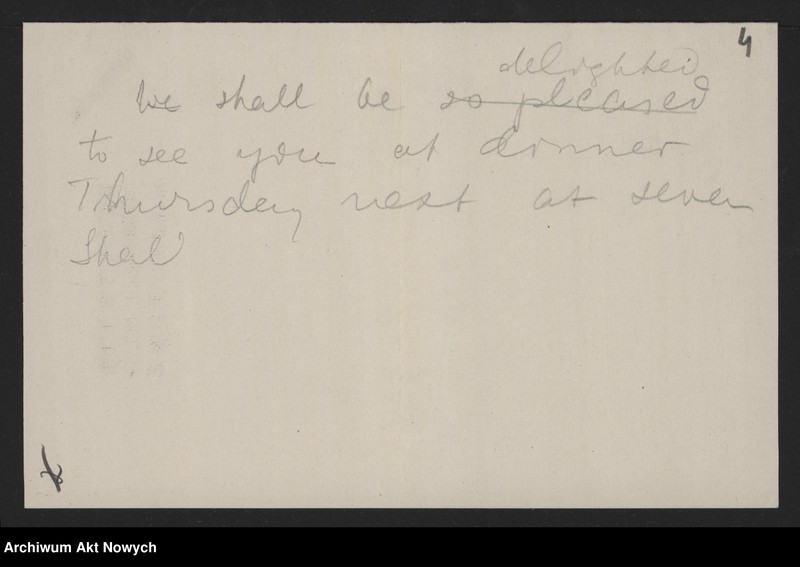 4
delighted
We shall be so pleased
to see you at dinner
Thursday next at seven
Shal
Archiwum Akt Nowych